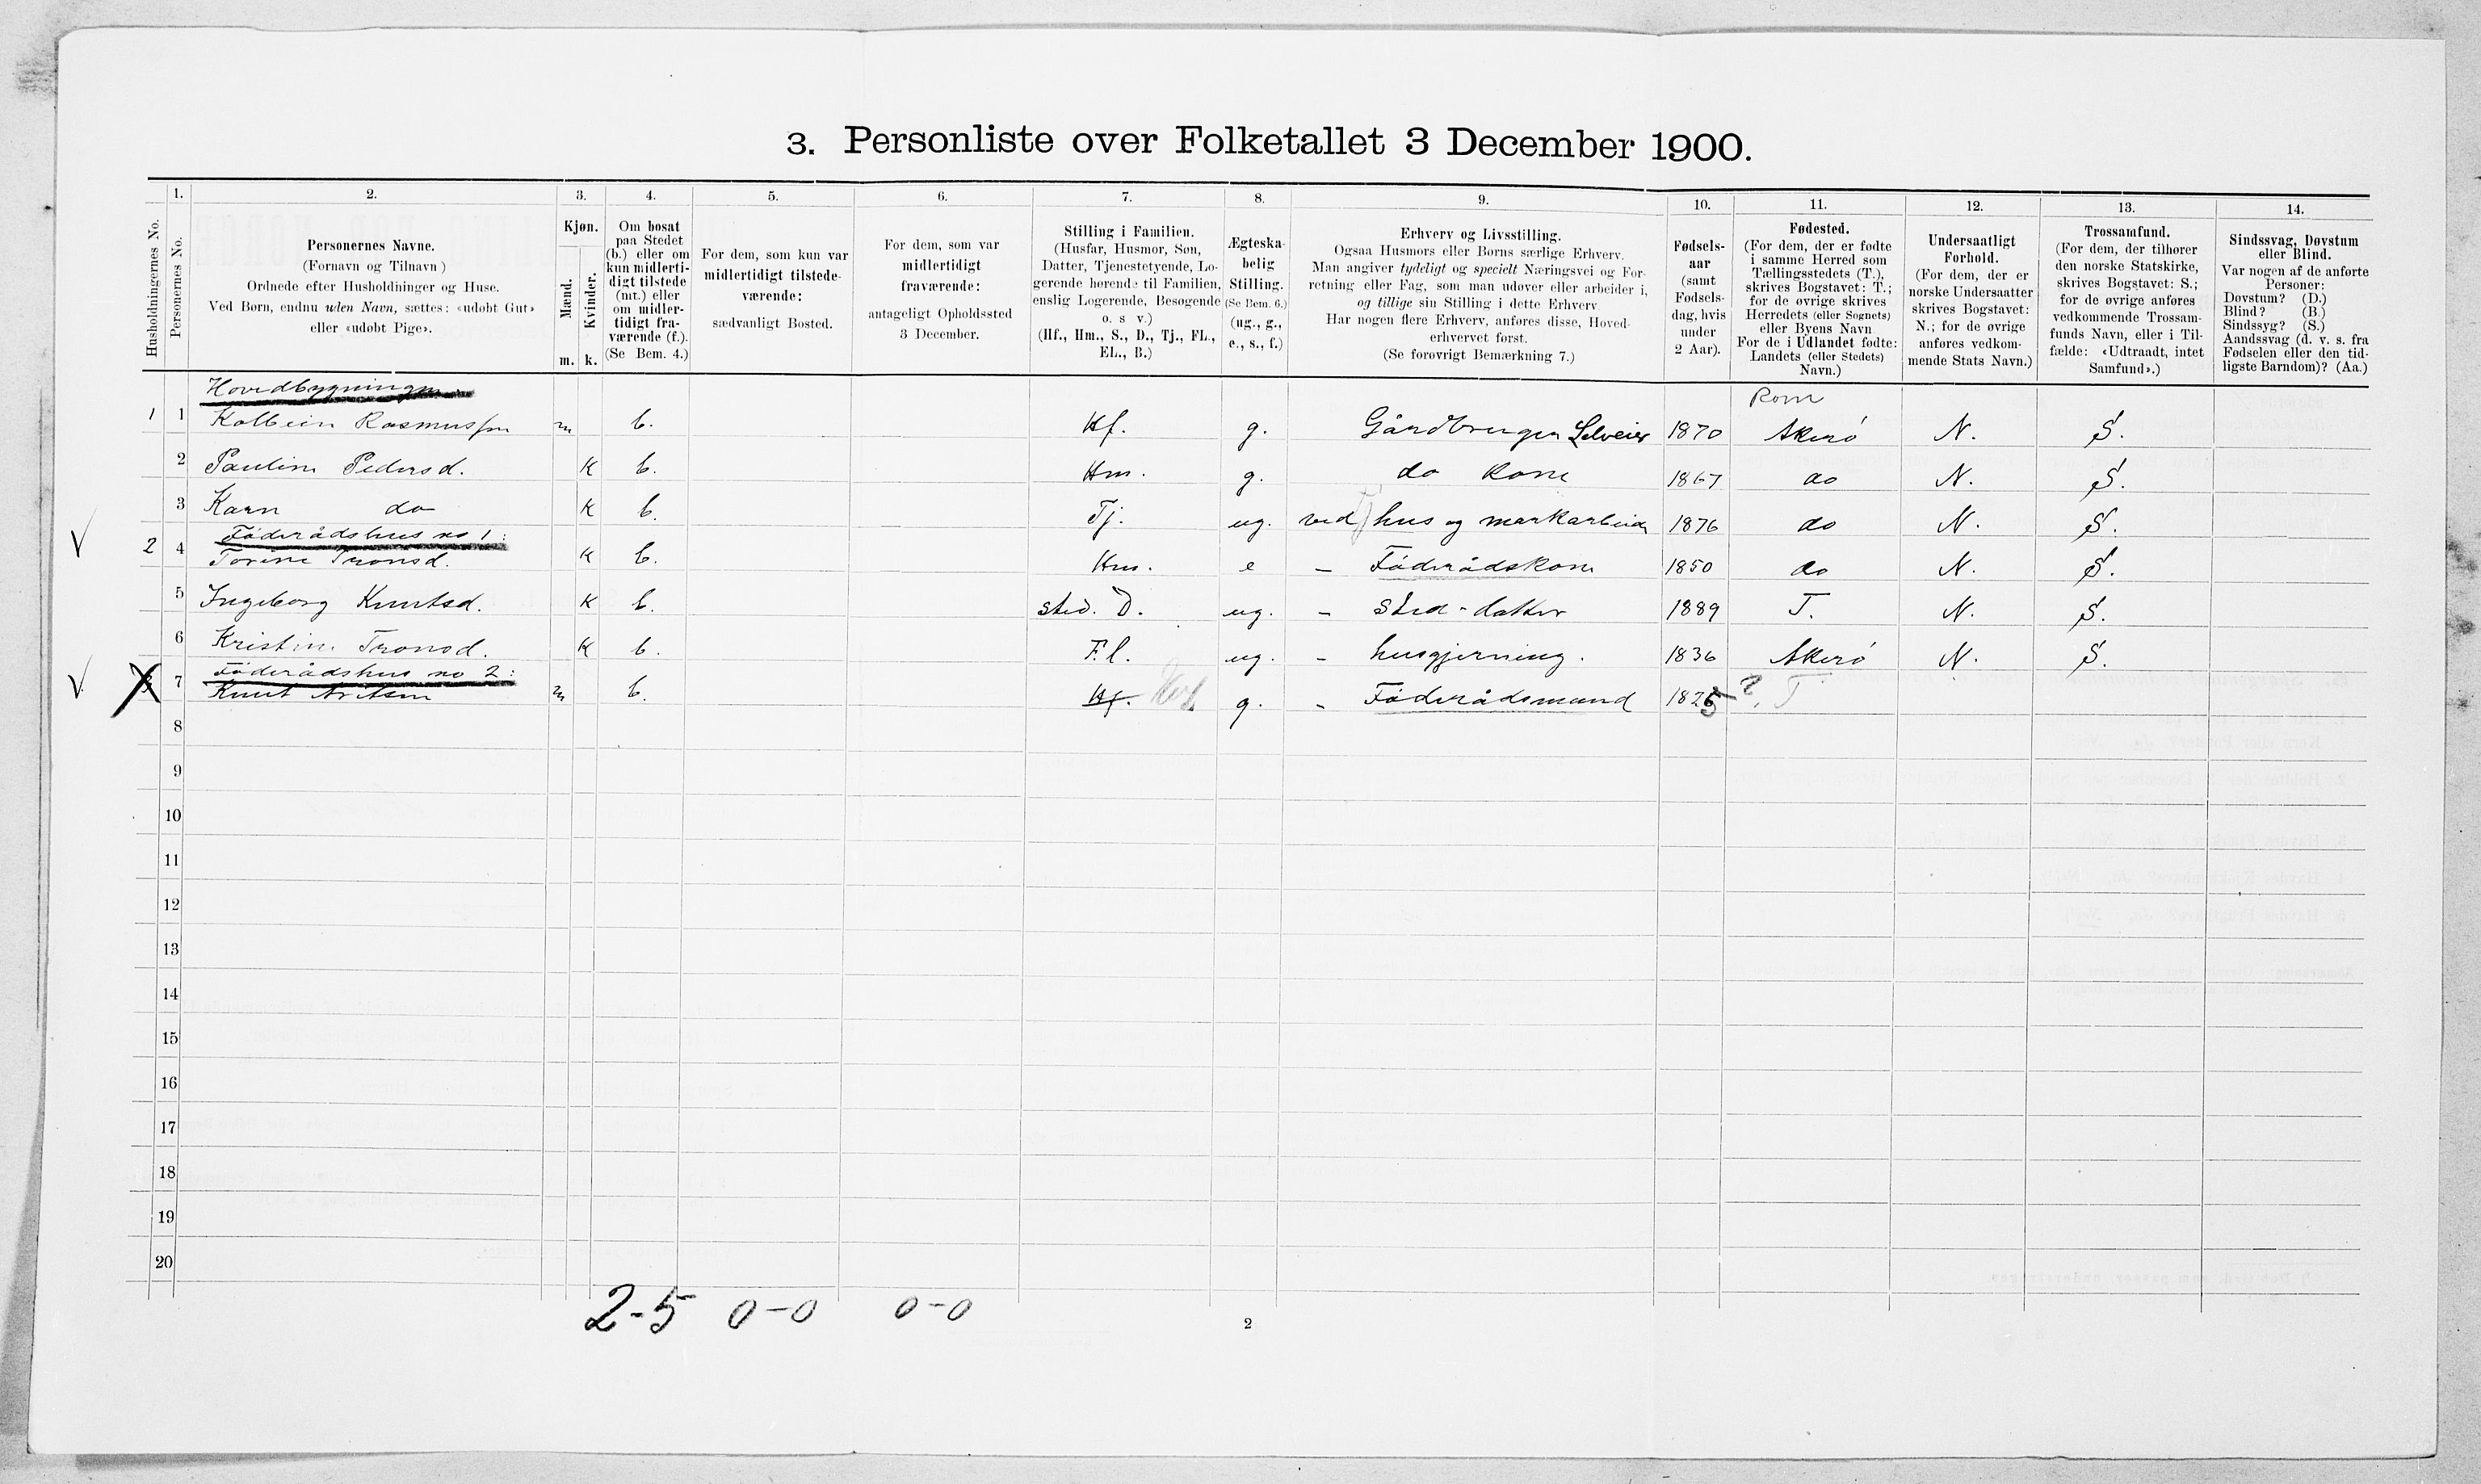 3. Personliste over Folketallet 3 December 1900.
1. 2. 3. 4. 5. 6. 7. 8. 9. 10. 11. 12. 13. 14.
Husholdningernes No.
Personernes No.
Personernes Navne.
(Fornavn og Tilnavn)
Ordnede efter Husholdninger og Huse.
Ved Børn, endnu uden Navn, sættes: «udøbt Gut»
eller «udøbt Pige».
Kjøn.
Mænd.
Kvinder.
m. k.
Om bosat
paa Stedet
(b.) eller om
kun midlerti-
digt tilstede
(mt.) eller
om midler-
tidigt fra-
værende (f.).
(Se Bem. 4.)
For dem, som kun var
midlertidigt tilstede-
værende:
sædvanligt Bosted.
For dem, som var
midlertidigt
fraværende:
antageligt Opholdssted
3 December.
Stilling i Familien.
(Husfar, Husmor, Søn,
Datter, Tjenestetyende, Lo-
gerende hørende til Familien,
enslig Logerende, Besøgende
o. s v.)
(Hf., Hm., S., D., Tj., FL.,
EL., B.)
Ægteska-
belig
Stilling.
(Se Bem. 6.)
(ug., g.,
e., s., f.)
Erhverv og Livsstilling.
Ogsaa Husmors eller Børns særlige Erhverv.
Man angiver tydeligt og specielt Næringsvei og For-
retning eller Fag, som man udøver eller arbeider i,
og tillige sin Stilling i dette Erhverv.
Har nogen flere Erhverv, anføres disse, Hoved-
erhvervet først.
(Se forøvrigt Bemærkning 7.)
Fødsels-
aar
(samt
Fødsels-
dag, hvis
under
2 Aar).
Fødested.
(For dem, der er fødte
i samme Herred som
Tællingsstedets (T.),
skrives Bogstavet: T.;
for de øvrige skrives
Herredets (eller Sognets)
eller Byens Navn
For de i Udlandet fødte:
Landets (eller Stedets)
Navn.)
Undersaatligt
Forhold.
(For dem, der er
norske Undersaatter
skrives Bogstavet:
N.; for de øvrige
anføres vedkom-
mende Stats Navn.)
Trossamfund.
(For dem, der tilhører
den norske Statskirke,
skrives Bogstavet: S.;
for de øvrige anføres
vedkommende Trossam-
funds Navn, eller i Til-
fælde: «Udtraadt, intet
Samfund».)
Sindssvag, Døvstum
eller Blind.
Var nogen af de anførte
Personer:
Døvstum? (D.)
Blind? (B.)
Sindssyg? (S.)
Aandssvag (d. v. s. fra
Fødselen eller den tid-
ligste Barndom)? (Aa.)
Hovedbygningen
Rom
1 1 Kolbein Rasmussen m b. Hf. g. Gårdbruger Selveier 1870 Akerö N. S.
2 Pauline Pedersd. K b. Hm. g. do Kone 1867 do N. S.
3 Karn do K b. Tj. ug. ved hus og markarbeide 1876 do N. S.
Föderådshus no 1:
V 2 4 Torine Tronsd. K b. Hm. e - Föderådskone 1850 do N. S.
5 Ingeborg Knutsd. K b. sted. D. ug. - sted-datter 1889 T. N. S.
6 Kristine Tronsd. K b. F.l. ug. - husgjerning. 1836 Akerö N. S.
Föderådshus no 2:
V 7 Knut m b. Hf. g. - Föderådsmand 1825 ? T
8
9
10
11
12
13
14
15
16
17
18
19
20
2-5 0-0 0-0
2